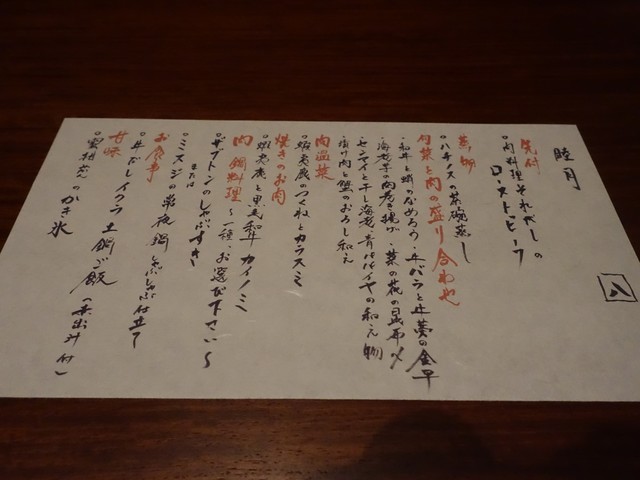 睦月
先付
・肉料理それがしの
ローストビーフ
蒸し物
・ハチノスの茶碗蒸し
旬菜と肉の盛り合わせ
・和牛と蛤のなめろう ・牛バラと牛蒡の金平
・海老芋の肉巻き揚げ ・菜の花の昆布〆
・センマイと干し海老、青パパイヤの和え物
・掛け肉と蟹のおろし和え
肉温菜
・蝦夷鹿のつくねとカラスミ
焼きのお肉
・蝦夷鹿と黒毛和牛カイノミ
肉鍋料理 〜一種、お選び下さい〜
・ザブトンのしゃぶすき
または
・ミスジの常夜鍋 しゃぶしゃぶ仕立て
お食事
・牛だしイクラ土鍋ご飯（赤出汁付）
甘味
のかき氷
八